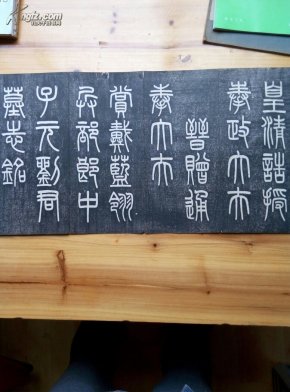 皇清誥授
奉政大夫
晉贈通
奉大夫
賞戴藍翎
兵部郎中
子元劉君
墓志銘